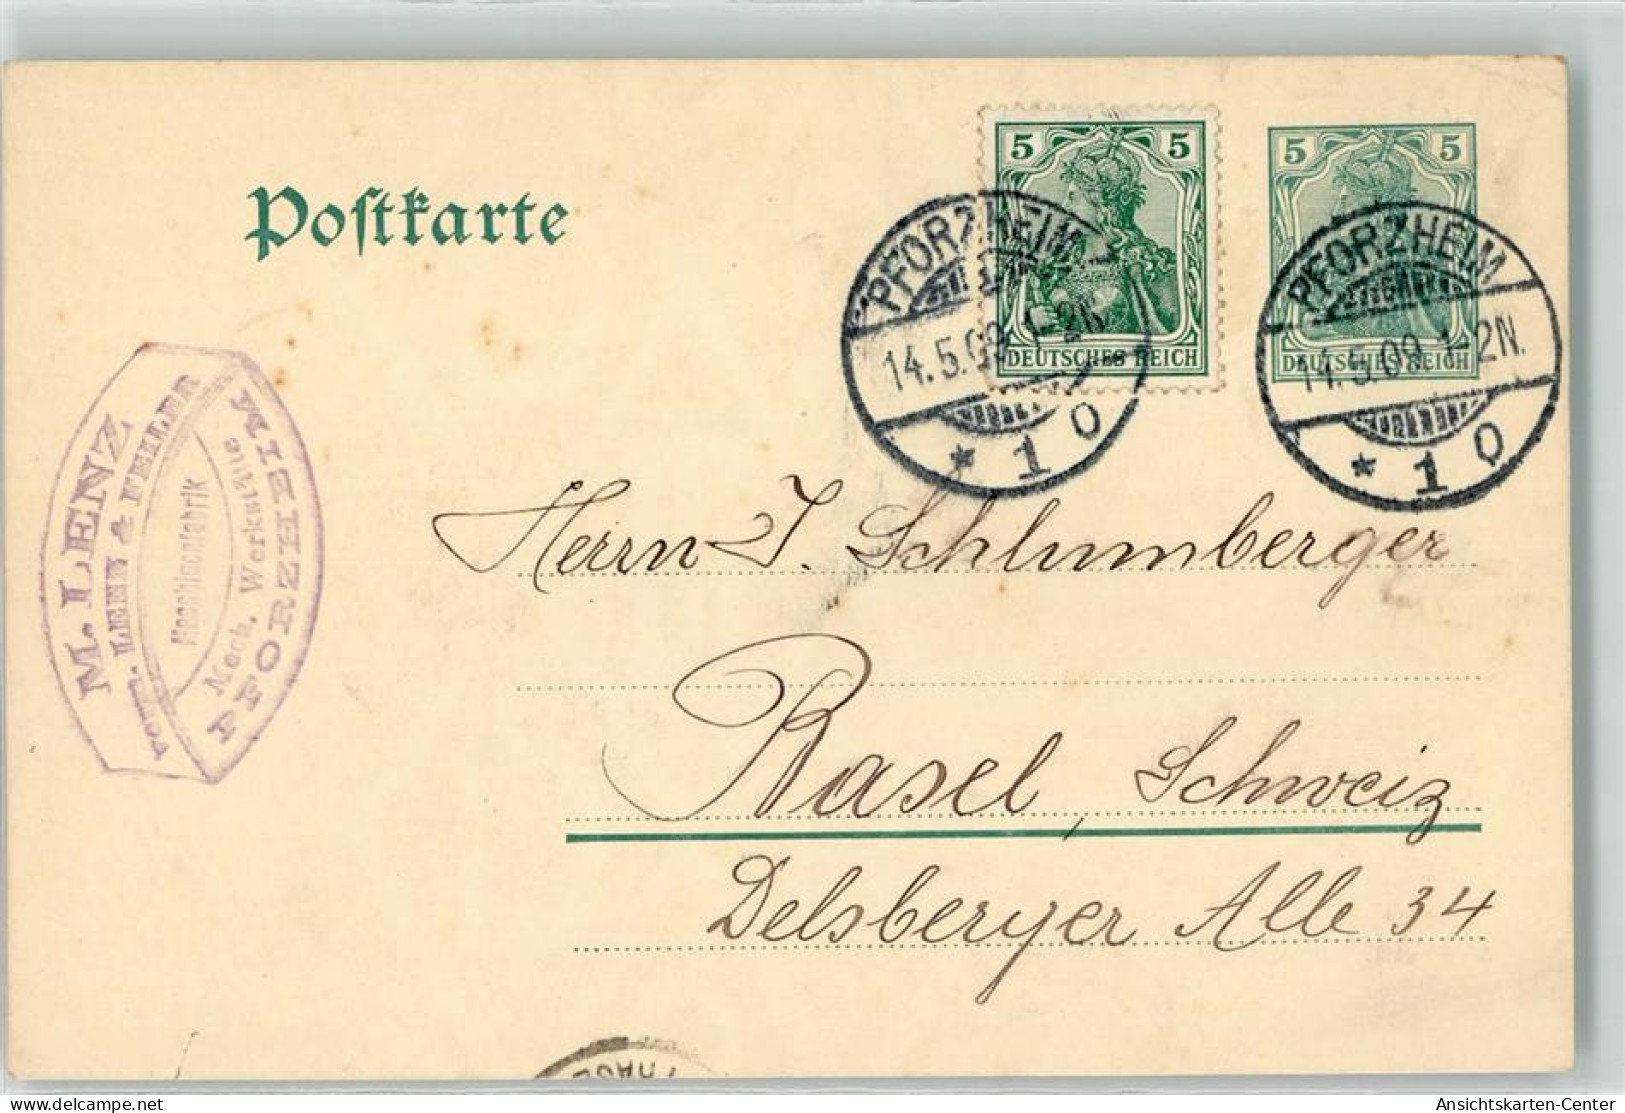 Postkarte
5 5
DEUTSCHES REICH
5 5
DEUTSCHES REICH
PFORZHEIM
14.5.09.1-2N.
* 1 o
PFORZHEIM
14.5.09.1-2N.
* 1 o
M. LENZ
vorm. LENZ & FEILER
Maschinenfabrik
Mech. Werkstätte
PFORZHEIM
Herrn J. Schlumberger
Basel, Schweiz
Delsberger Alle 34
Ansichtskarten-Center